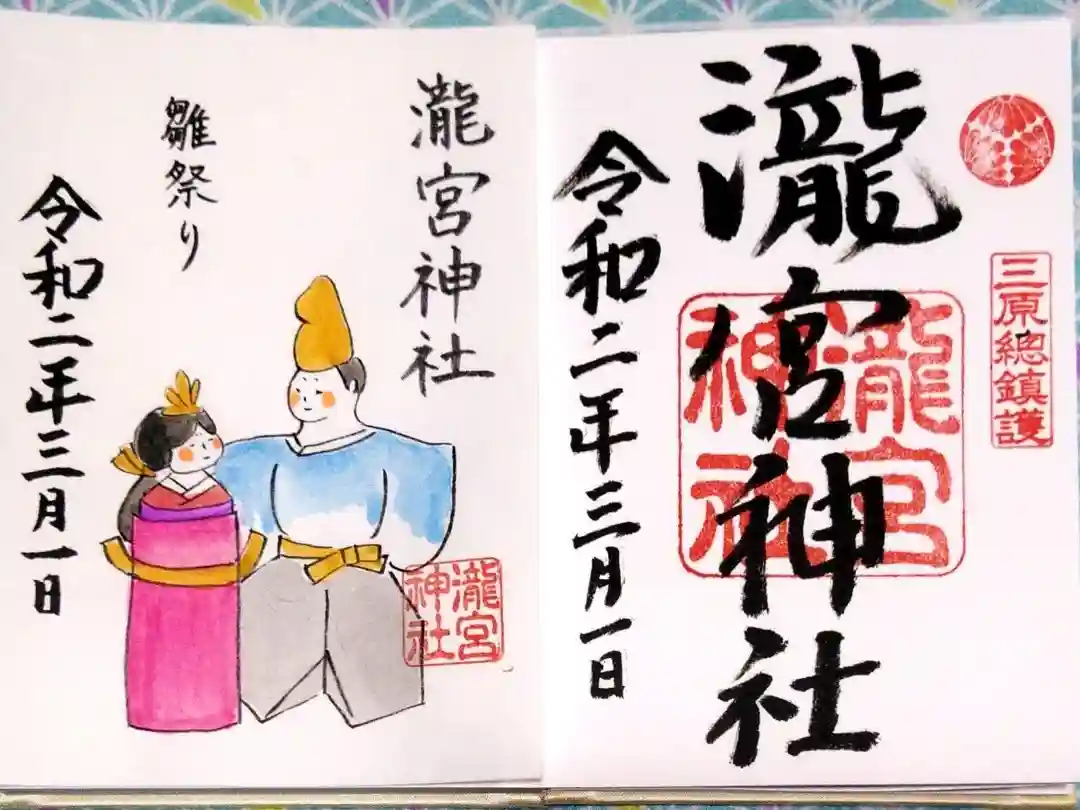 三原總鎮護
瀧宮神社
瀧宮
神社
令和二年三月一日
瀧宮神社
雛祭り
令和二年三月一日
瀧宮
神社